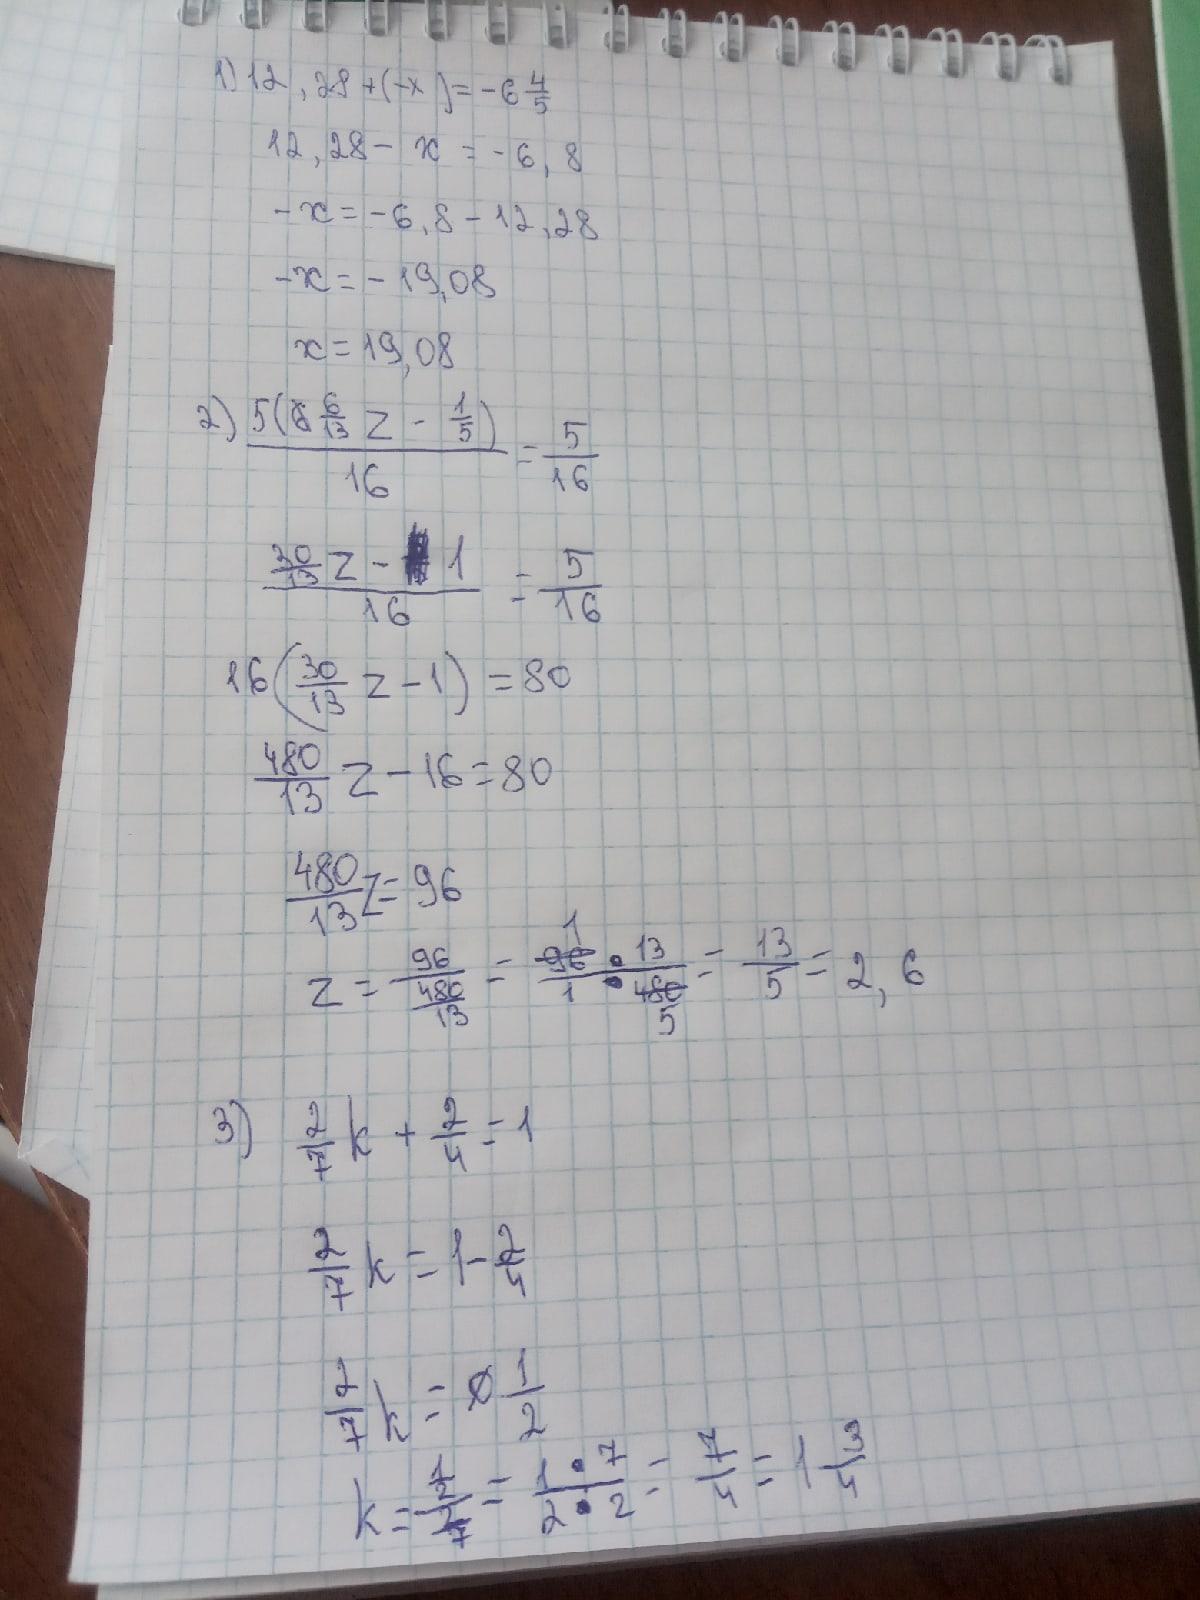 1) 12,28+(-x)=-6 4/5
12,28-x=-6,8
-x=-6,8-12,28
-x=-19,08
x=19,08
2) 5(6/13 z - 1/5)/16 = 5/16
(30/13 z - 1)/16 = 5/16
16(30/13 z - 1) = 80
480/13 z - 16 = 80
480/13 z = 96
z = 96/(480/13) = 96/1 · 13/480 = 13/5 = 2,6
3) 2/7 k + 2/4 = 1
2/7 k = 1 - 2/4
2/7 k = 1/2
k = (1/2)/(2/7) = 1·7/2·2 = 7/4 = 1 3/4